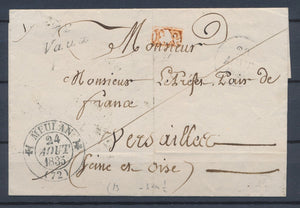 Vaux
P.P.
Monsieur
Monsieur Le Préfet Pair de
france
Versailles
(Seine et Oise)
MEULAN
24
AOUT
1835
(72)